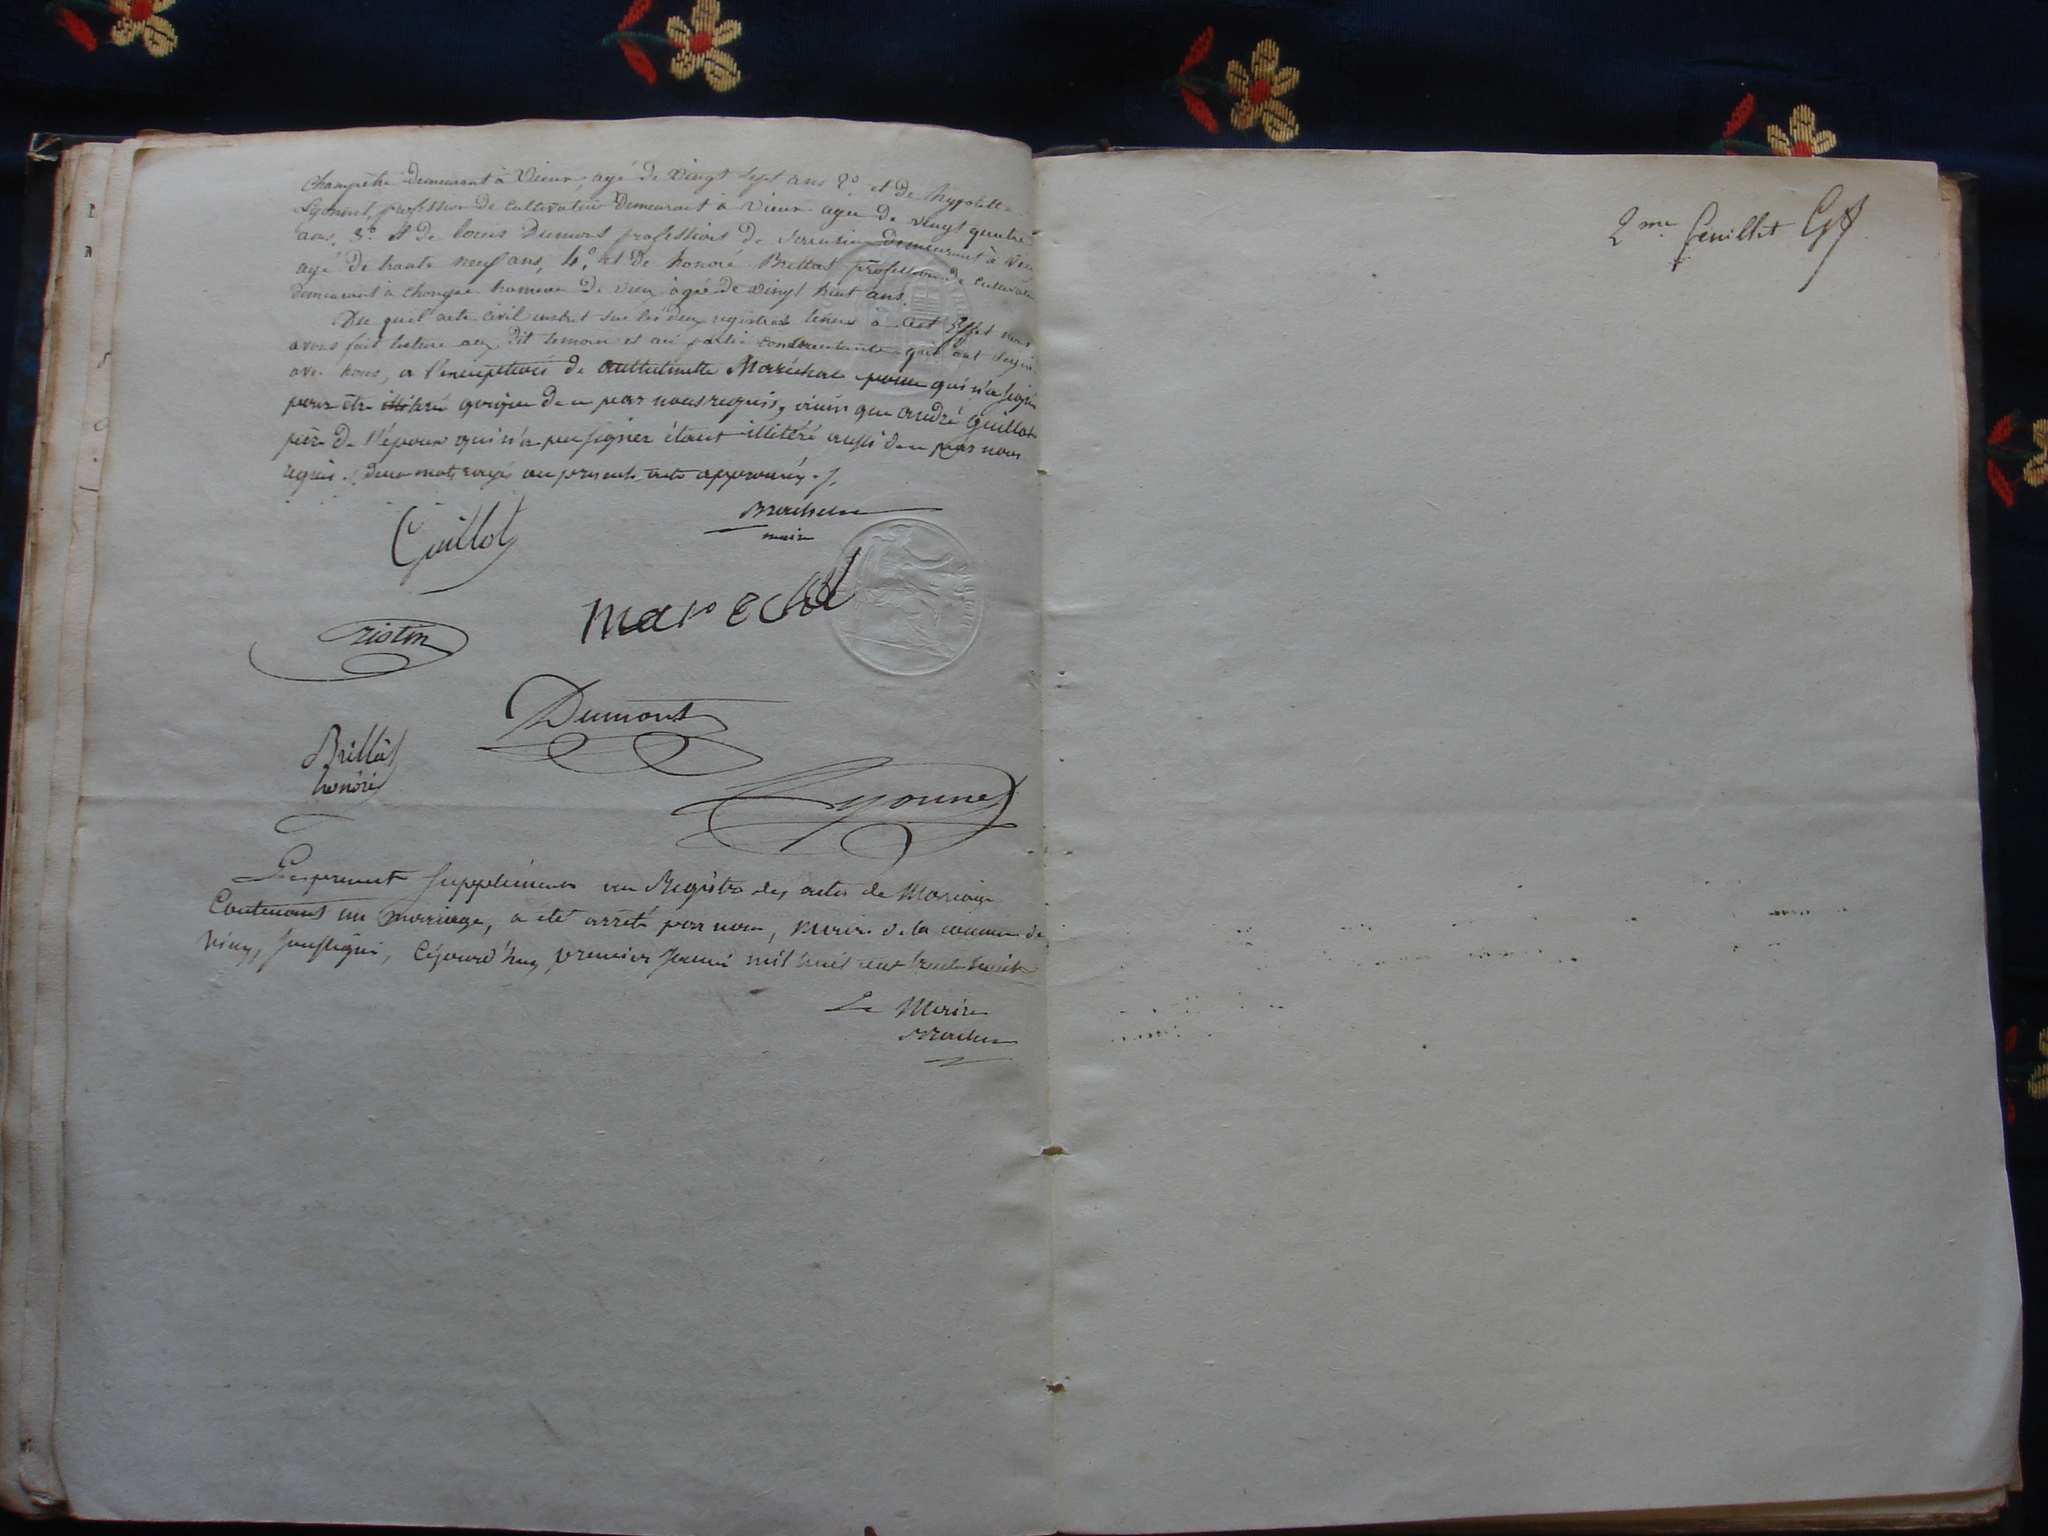 champêtre demeurant à Vieux, agé de vingt sept ans 2.o et de hypolitte
Lyonnet, profession de cultivateur demeurant à vieux agée de vingt quatre
ans, 3.o et de louis Dumont professions de demeurant à Vieu
agé de trante neuf ans, 4.o et de honoré Brillat profession de cultivateur
demeurant à chongne hameau de vieu agée de vingt huit ans.
Du quel acte civil inscrit sur les deux registres tenus à cet Effet nous
avons fait lecture aux dit temoin et au partie contractante qui ont signé
avec nous, a l'exception de Maréchal qui n'a signé
pour être illitéré de ce par nous requis, ainsi que andré Guillot
père de l'épour qui n'a pu signer étant illitéré aussi de ce par nous
requis ./. deux mots rayés au present acte approuvés ./.
Guillot
maire
marechal
ristin
Dumont
Brillat
honoré
Lyonnet
Le present supplément au Registre des actes de Mariage
Contenant un marriage, a été arrêté par nous, maire de la commune de
vieux, soussigné, cejourd'huy premier Janvié mil huit cent trente huit
Le Maire
2me feuillet